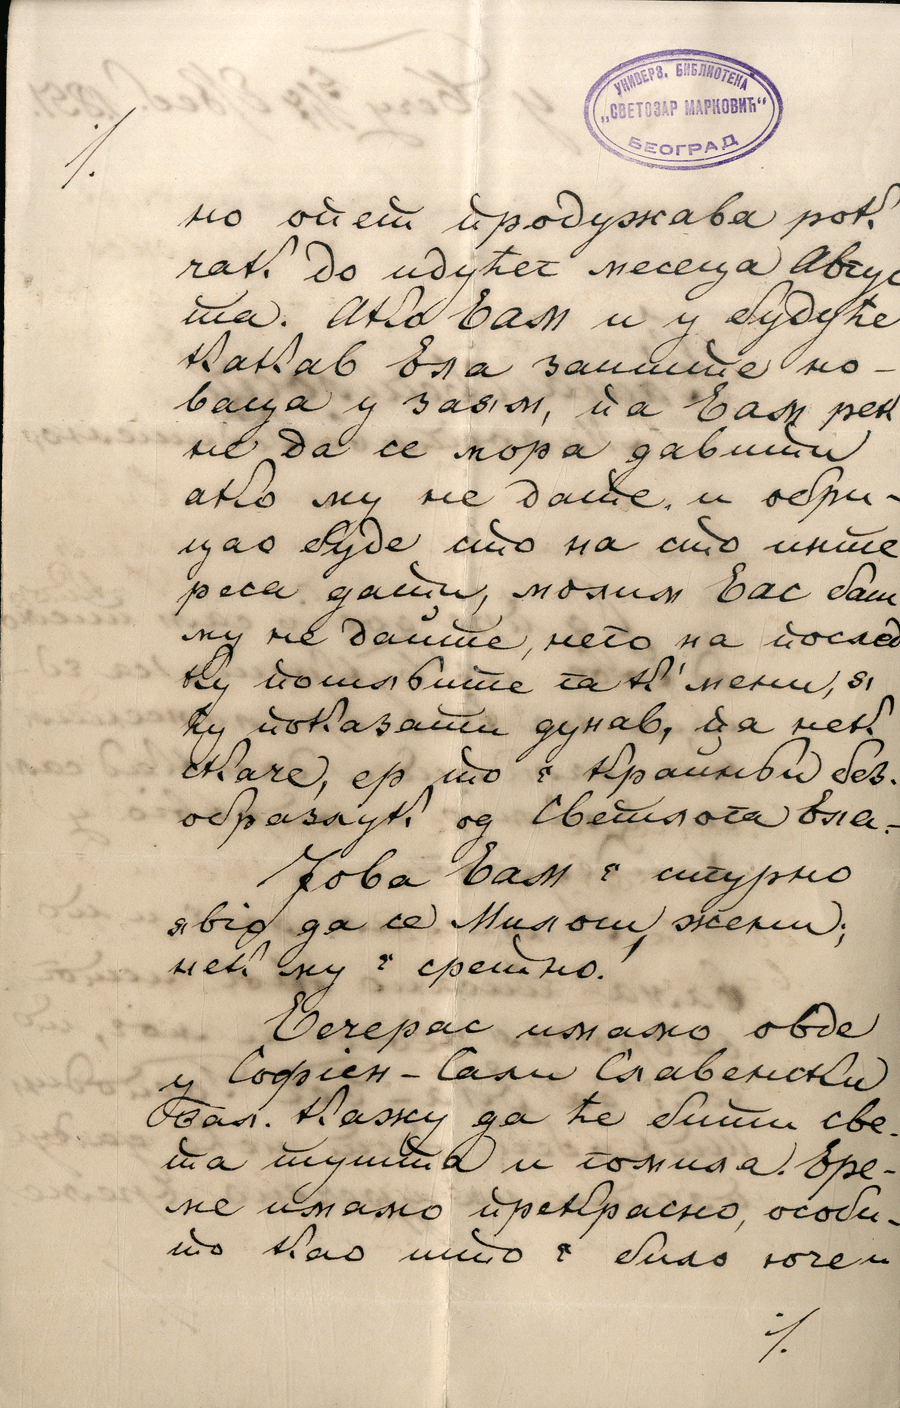 УНИВЕРЗ. БИБЛИОТЕКА
„СВЕТОЗАР МАРКОВИЋ“
БЕОГРАД
./.
но опет продужава рок
чак до идућег месеца Авгус
та. Ако Вам и у будуће
какав Вла запште но-
ваца у заям, па Вам рек
не да се мора давити
ако му не дате. и обри-
цао буде сто на сто инте
реса дати, молим Вас баш
му не дайте, него на послед
ку пошлите га к' мени, я
ћу показати дунав, па нек
скаче, ер то є крайньи без.
образлук од Светлога Вла.-
Јова Вам є сигурно
явіо да се Милош жени;
нек му є сретно!
Вечерас имамо овде
у Софіен-Сали Славенски
бал. Кажу да ће бити све-
та тушта и гомила. Вре-
ме имамо прекрасно, особи-
то као што є было юче и
./.